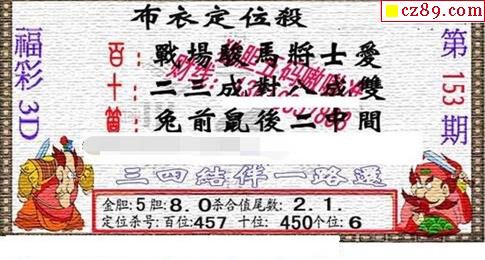 cz89.com
布衣定位殺
福彩3D
第153期
百 戰場駿馬將士愛
十 二三成對六成雙
箇 兔前鼠後二中間
三四結伴一路選
金胆:5胆:8.0杀合值尾数:2.1.
定位杀号:百位:457 十位:450个位:6